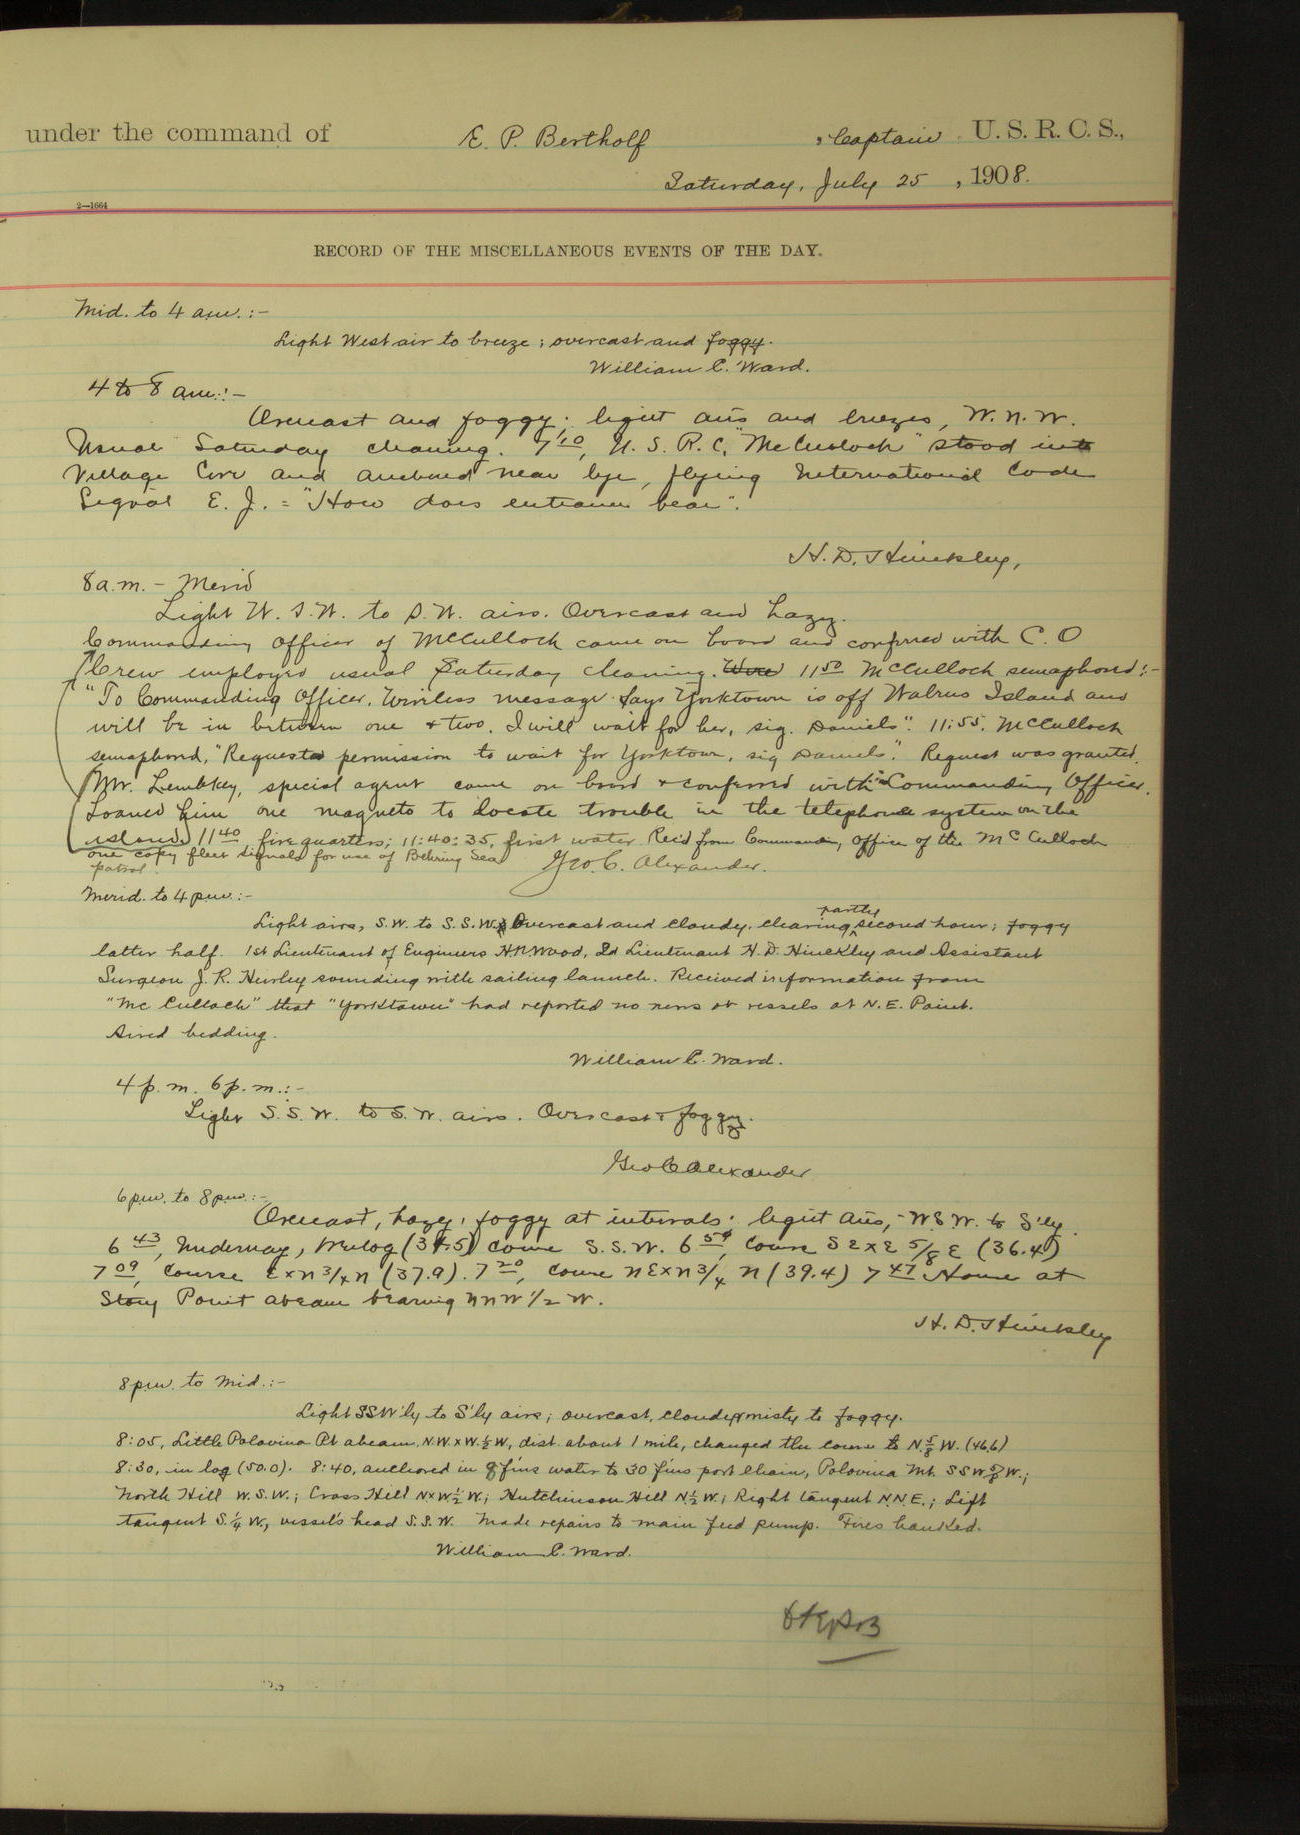 under the command of E. P. Bertholf, Captain U. S. R. C. S.,
Saturday, July 25, 1908.
2—1664
RECORD OF THE MISCELLANEOUS EVENTS OF THE DAY.
Mid. to 4 am.:-
Light West air to breeze; overcast and foggy.
William C. Ward.
4 to 8 am.:-
Overcast and foggy; light airs and breezes, W.N.W.
Usual Saturday cleaning. 7 10, U.S.R.C. "McCulloch" stood into
Village Cove and anchored near bye, flying International Code
Signal E. J. = "How does entrance bear".
H. D. Hinckley,
8 a.m. - Merid
Light W.S.W. to S.W. airs. Overcast and hazy.
Commanding Officer of McCulloch came on board and conferred with C. O
Crew employed usual Saturday cleaning. 11 50 McCulloch semaphored:-
"To Commanding Officer. Wireless message says Yorktown is off Walrus Island and
will be in between one & two. I will wait for her, sig. Daniels". 11:55. McCulloch
semaphored, "Request permission to wait for Yorktown, sig Daniels". Request was granted.
Mr. Lembkey, special agent came on board & conferred with Commanding Officer.
Loaned him one magneto to locate trouble in the telephone system on the
island. 11 40 fire quarters; 11:40:35, first water Rec'd from Commandg Officer of the McCulloch
one copy fleet signals for use of Behring Sea
patrol.
Geo. C. Alexander.
Merid. to 4 pm.:-
Light airs, S.W. to S.S.W. Overcast and cloudy, clearing partly second hour; foggy
latter half. 1st Lieutenant of Engineers H.N. Wood, 2d Lieutenant H. D. Hinckley and Assistant
Surgeon J. R. Hurley sounding with sailing launch. Received information from
"McCulloch" that "Yorktown" had reported no news or vessels at N.E. Point.
Aired bedding.
William C. Ward.
4 p.m. 6 p.m.:-
Light S.S.W. to S.W. airs. Overcast & foggy.
Geo C Alexander
6 pm. to 8 pm.:-
Overcast, hazy, foggy at intervals; light airs, - WSW. to S'ly.
6 43, Underway, course S.S.W. 6 59, course SExE 5/8 E (36.4)
7 09, course ExN 3/4 N (37.9). 7 20, course NExN 3/4 N (39.4) 7 47 House at
Stony Point abeam bearing NNW 1/2 W.
H. D. Hinckley
8 pm. to Mid.:-
Light SSW'ly to S'ly airs; overcast, cloudy & misty to foggy.
8:05, Little Polovina Pt abeam, N.W.xW.½W, dist. about 1 mile, changed the course to N.⅝W. (46.6)
8:30, in log (50.0). 8:40, anchored in 8 fms water to 30 fms port chain, Polovina Mt. SSW⅝W.;
North Hill W.S.W.; Cross Hill NxW½W; Hutchinson Hill N½W.; Right tangent N.N.E.; Left
tangent S.¼W., vessel's head S.S.W. Made repairs to main feed pump. Fires banked.
William C. Ward.